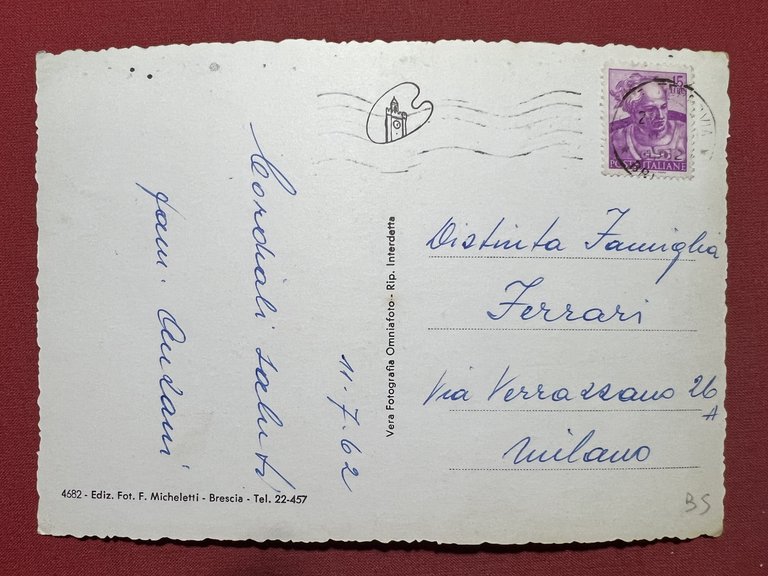 Cordiali saluti
fam.
11.7.62
4682 - Ediz. Fot. F. Micheletti - Brescia - Tel. 22-457
Vera Fotografia Omniafoto - Rip. Interdetta
15
POSTE ITALIANE
Distinta Famiglia
Ferrari
Via Verrazzano 26
A
Milano
BS